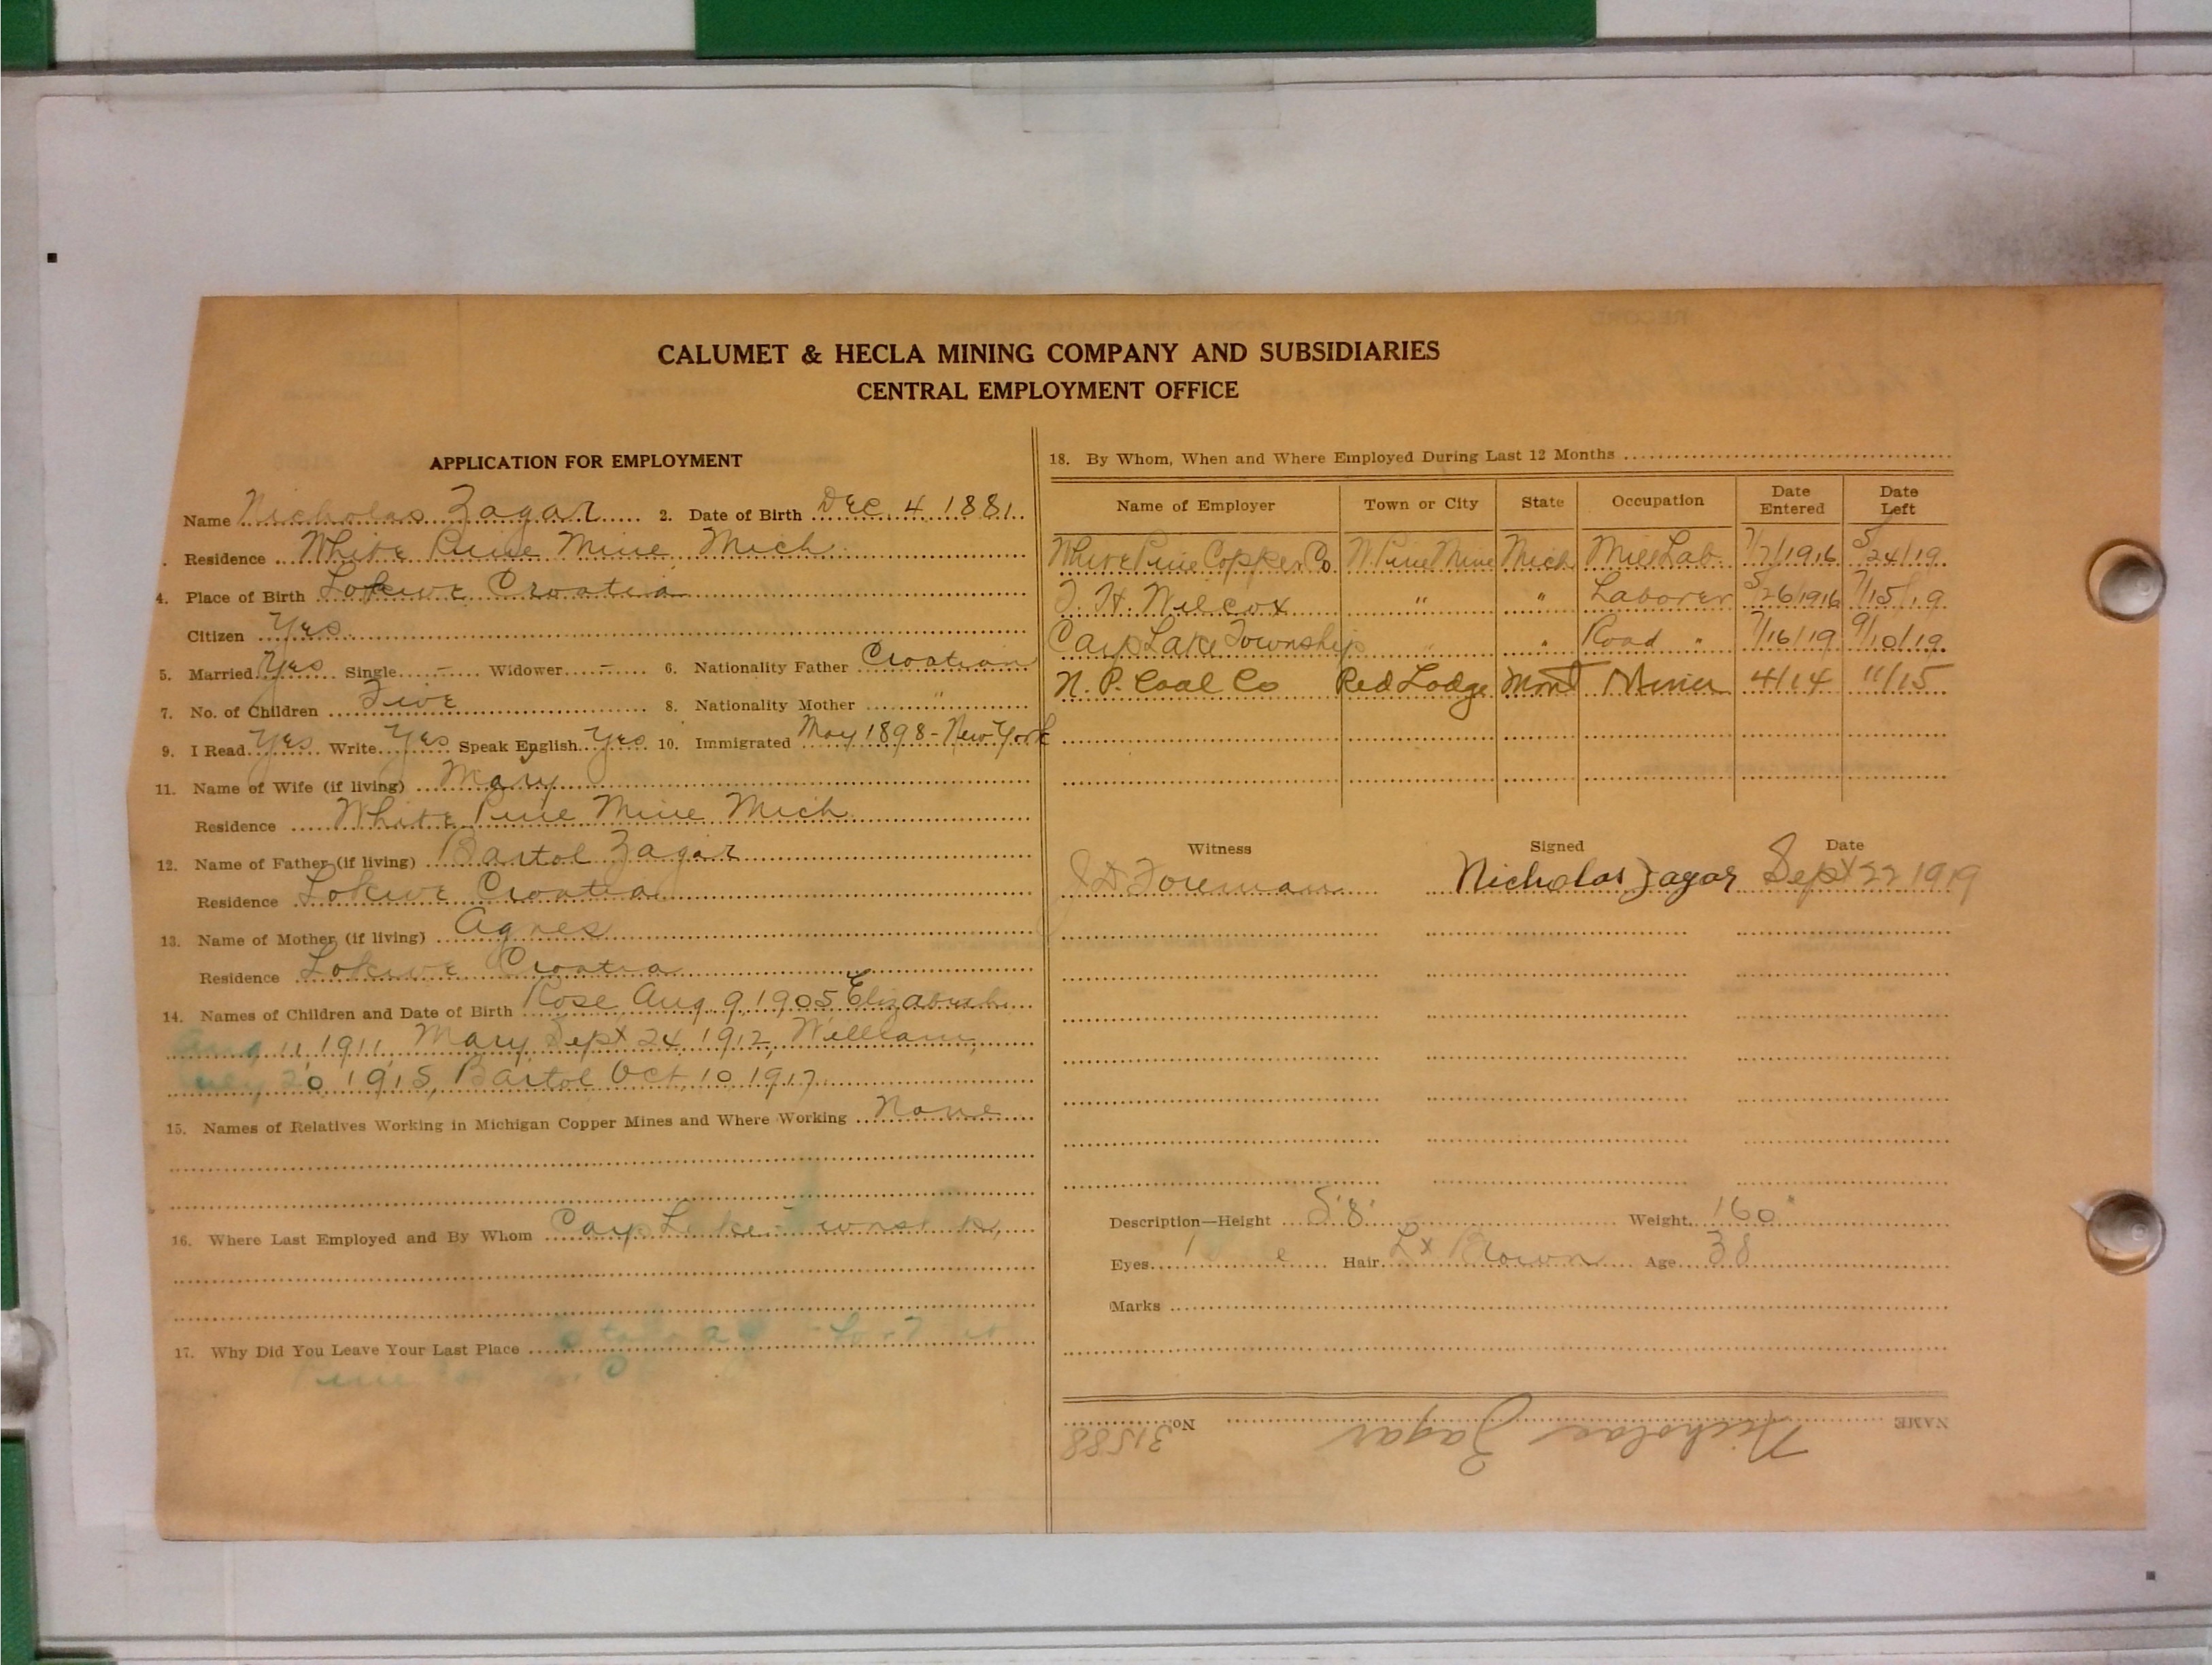 CALUMET & HECLA MINING COMPANY AND SUBSIDIARIES
CENTRAL EMPLOYMENT OFFICE
APPLICATION FOR EMPLOYMENT
Name Nicholas Zagar 2. Date of Birth Dec. 4 1881
Residence White Pine Mine Mich
4. Place of Birth Lokwe Croatia
Citizen Yes
5. Married Yes Single — Widower — 6. Nationality Father Croatian
7. No. of Children Five 8. Nationality Mother "
9. I Read Yes Write Yes Speak English Yes 10. Immigrated May 1898 - New York
11. Name of Wife (if living) Mary
Residence White Pine Mine Mich
12. Name of Father (if living) Bartol Zagar
Residence Lokwe Croatia
13. Name of Mother (if living) Agnes
Residence Lokwe Croatia
14. Names of Children and Date of Birth Rose Aug 9 1905 Elizabeth
Aug 11, 1911, Mary Sept 24, 1912, William,
July 20 1915, Bartol Oct 10 1917
15. Names of Relatives Working in Michigan Copper Mines and Where Working None
16. Where Last Employed and By Whom Carp Lake Township
17. Why Did You Leave Your Last Place
18. By Whom, When and Where Employed During Last 12 Months
Name of Employer Town or City State Occupation Date Entered Date Left
White Pine Copper Co W. Pine Mine Mich Mill Lab. 7/2/1916 5/24/19
H. Wilcox " " Laborer 5/26/1916 7/15/19
Carp Lake Township " " Road " 7/16/19 9/10/19
N. P. Coal Co Red Lodge Mont Miner 4/14 11/15
Witness Signed Date
J D Foreman Nicholas Zagar Sept 22 1919
Description—Height 5'8" Weight 160"
Eyes Hair Lt Brown Age 38
Marks
NAME Nicholas Zagar No. 31588